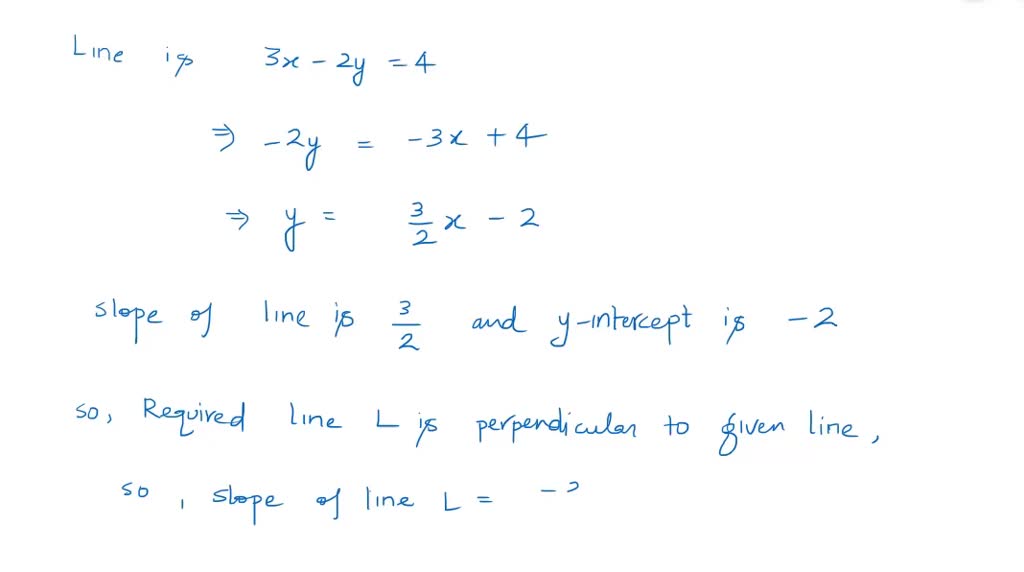 Line is 3x - 2y = 4
⇒ -2y = -3x + 4
⇒ y = 3/2 x - 2
slope of line is 3/2 and y-intercept is -2
so, Required line L is perpendicular to given line,
so, slope of line L = -